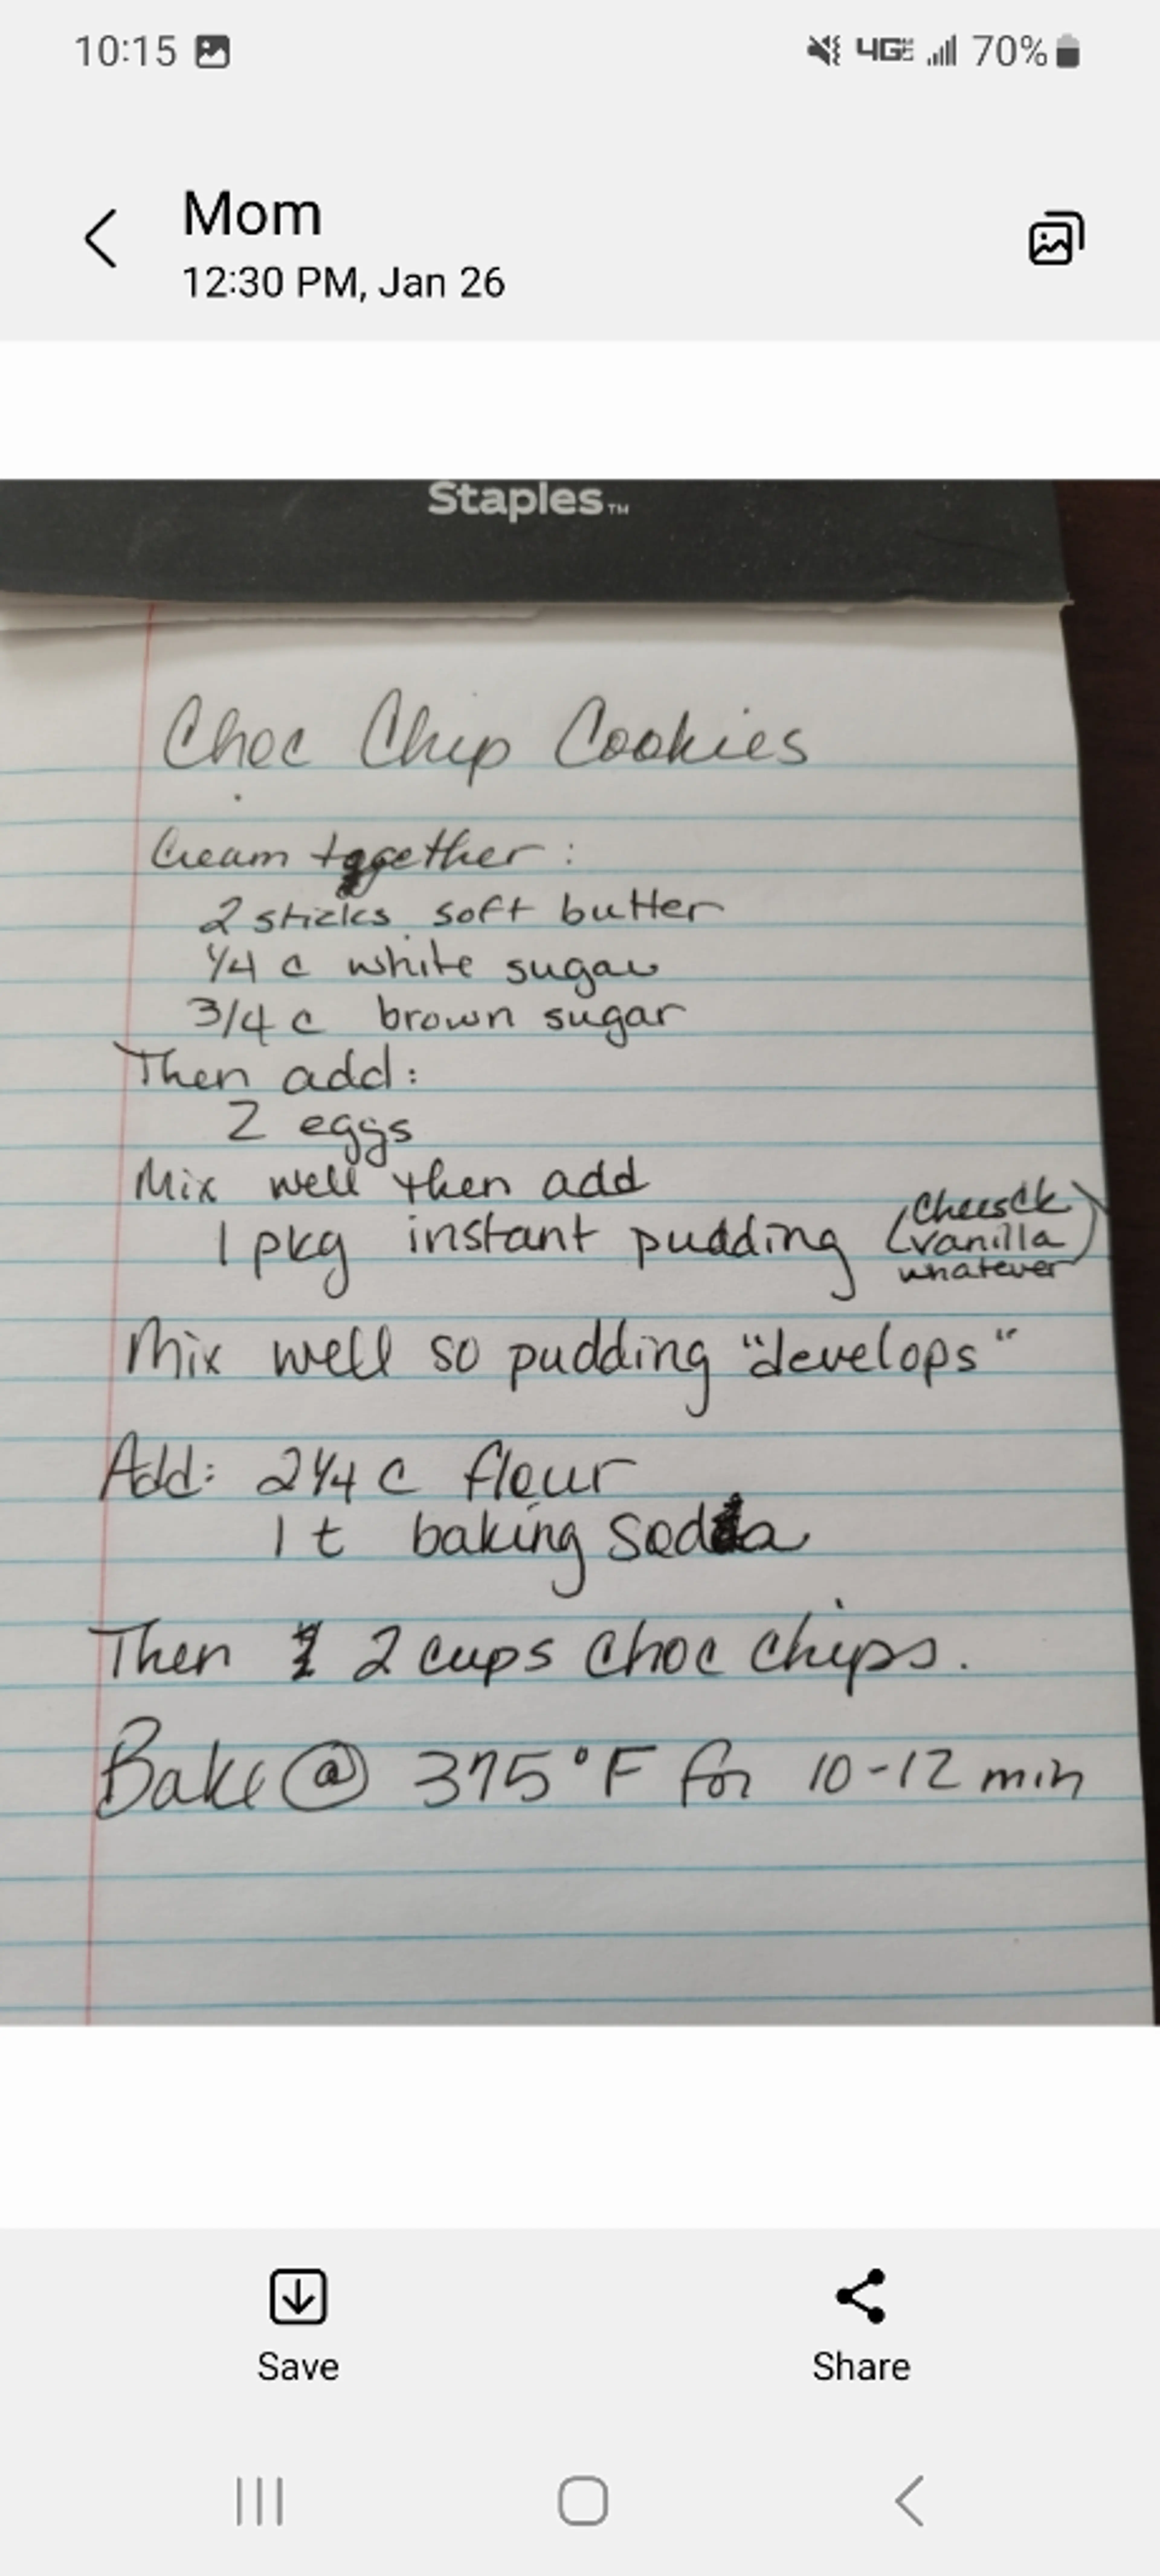 10:15 4GE 70%
Mom
12:30 PM, Jan 26
Staples™
Choc Chip Cookies
Cream together:
2 sticks soft butter
1/4 c white sugar
3/4 c brown sugar
Then add:
2 eggs
Mix well then add
1 pkg instant pudding (cheesck
vanilla
whatever)
Mix well so pudding "develops"
Add: 2 1/4 c flour
1 t baking soda
Then 2 cups choc chips.
Bake @ 375°F for 10-12 min
Save
Share